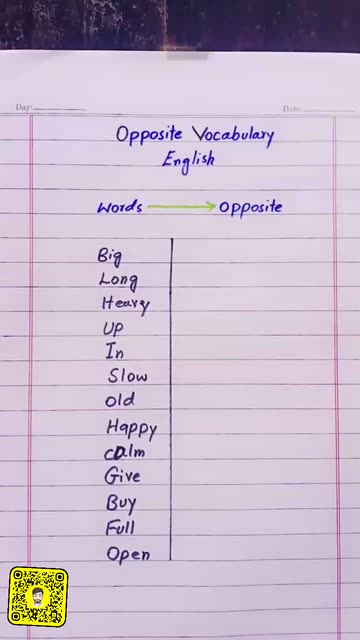 Day:
Date:
Opposite Vocabulary
English
Words → Opposite
Big
Long
Heavy
Up
In
Slow
Old
Happy
Calm
Give
Buy
Full
Open